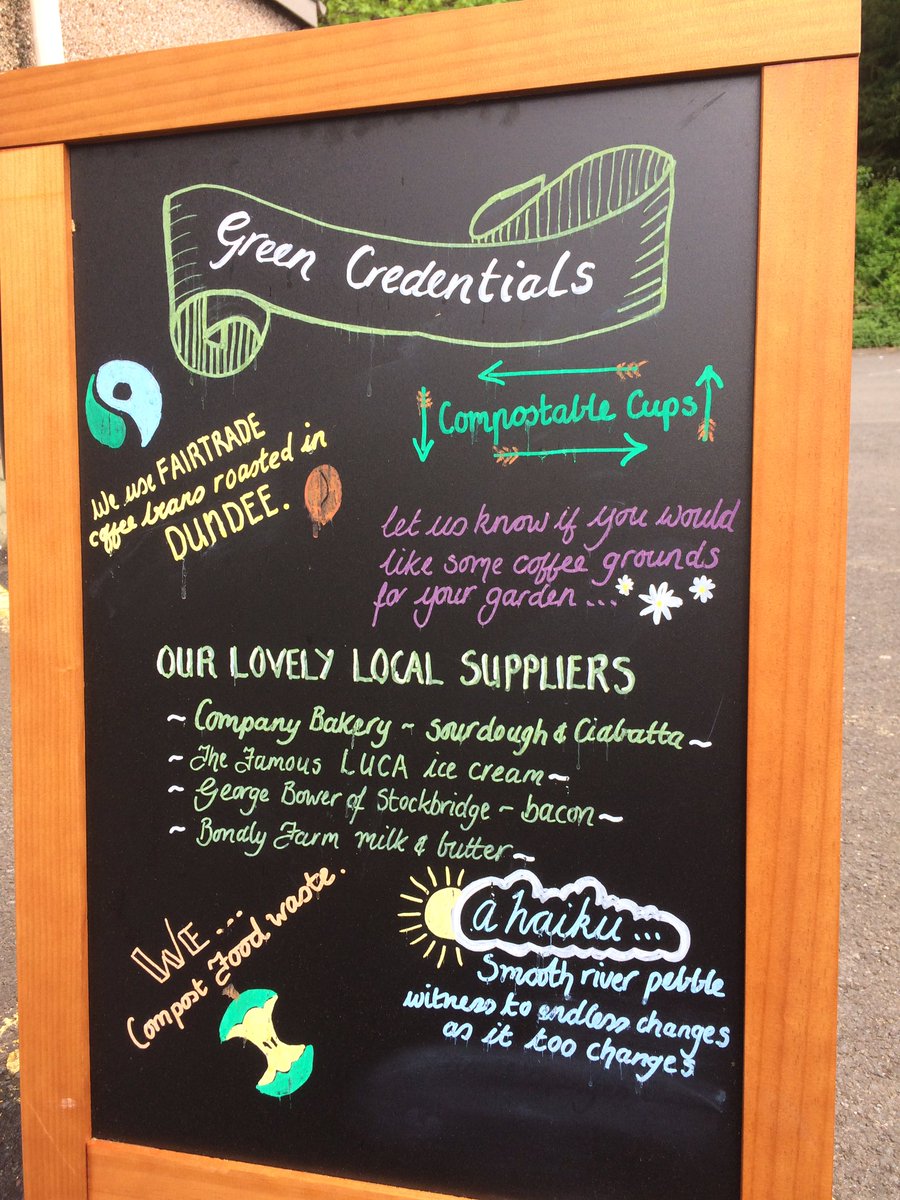 Green Credentials
Compostable Cups
We use FAIRTRADE
coffee beans roasted in
DUNDEE.
let us know if you would
like some coffee grounds
for your garden ...
OUR LOVELY LOCAL SUPPLIERS
~ Company Bakery - sourdough & Ciabatta ~
~ The Famous LUCA ice cream ~
~ George Bower of Stockbridge - bacon ~
~ Bonaly Farm milk & butter ~
WE...
Compost Food waste.
a haiku ...
Smooth river pebble
witness to endless changes
as it too changes